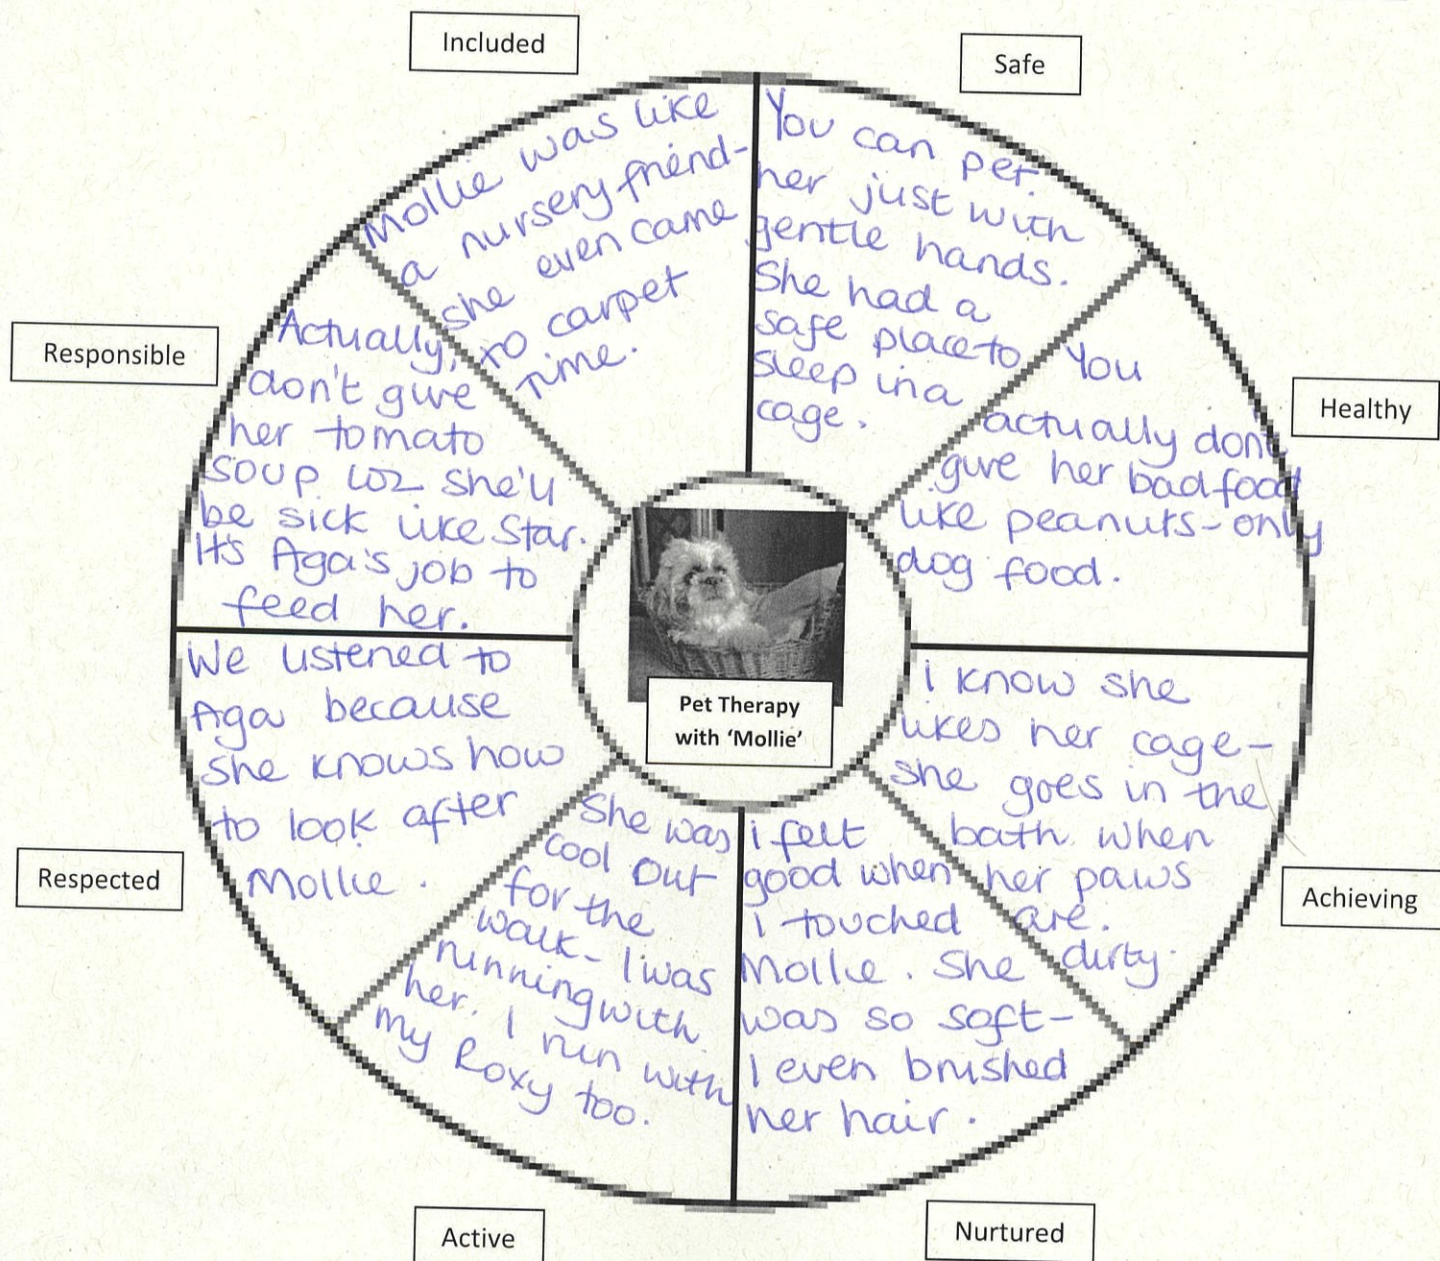 Included
Mollie was like
a nursery friend-
she even came
to carpet
time.
Safe
You can pet
her just with
gentle hands.
She had a
safe place to
sleep in a
cage.
Healthy
You
actually don't
give her bad food
like peanuts - only
dog food.
Achieving
i know she
likes her cage -
she goes in the
bath when
her paws
are.
dirty.
Nurtured
i felt
good when
i touched
Mollie. She
was so soft -
I even brushed
her hair.
Active
She was
cool out
for the
walk - I was
running with
her. I run with
my Roxy too.
Respected
We listened to
Aga because
she knows how
to look after
Mollie.
Responsible
Actually,
don't give
her tomato
soup coz she'll
be sick like Star.
It's Aga's job to
feed her.
Pet Therapy
with ‘Mollie’